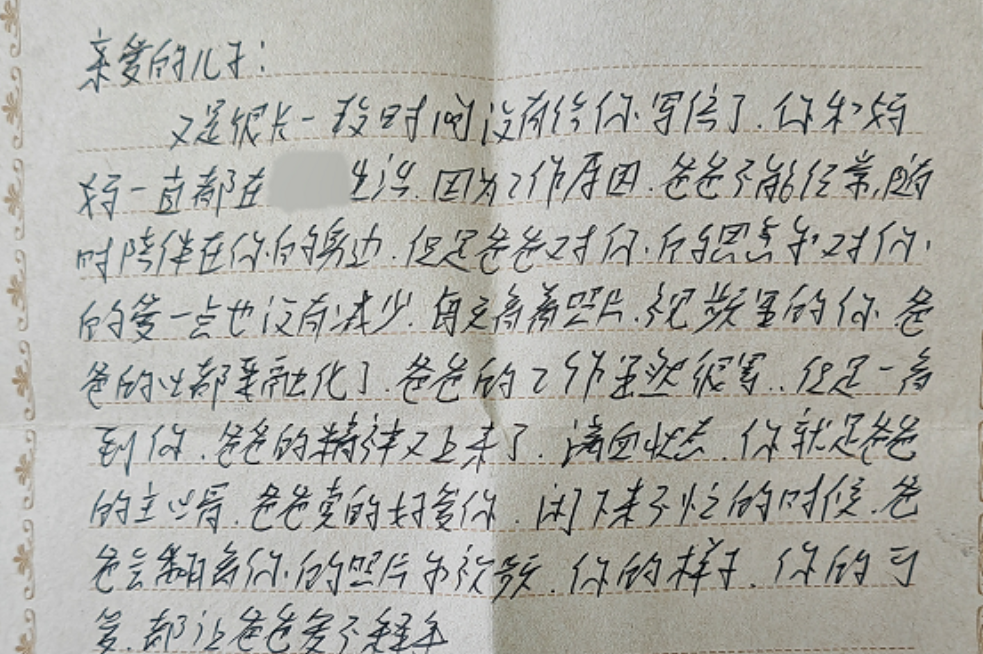 亲爱的儿子：
又是很长一段时间没有给你写信了.你和妈
妈一直都在 生活.因为工作原因.爸爸不能经常,随
时陪伴在你的身边.但是爸爸对你的思念和对你
的爱一点也没有减少.每天看着照片.视频里的你.爸
爸的心都要融化了.爸爸的工作虽然很累..但是一看
到你.爸爸的精神又上来了.满血状态.你就是爸爸
的主心骨.爸爸真的好爱你.闲下来不忙的时候.爸
爸会翻看你的照片和视频.你的样子.你的可
爱.都让爸爸爱不释手